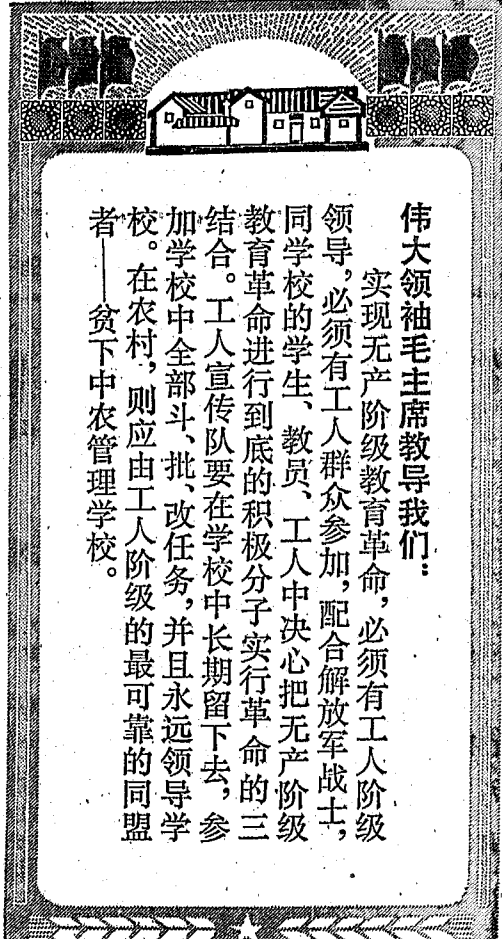 伟大领袖毛主席教导我们：
实现无产阶级教育革命，必须有工人阶级
领导，必须有工人群众参加，配合解放军战士，
同学校的学生、教员、工人中决心把无产阶级
教育革命进行到底的积极分子实行革命的三
结合。工人宣传队要在学校中长期留下去，参
加学校中全部斗、批、改任务，并且永远领导学
校。在农村，则应由工人阶级的最可靠的同盟
者——贫下中农管理学校。